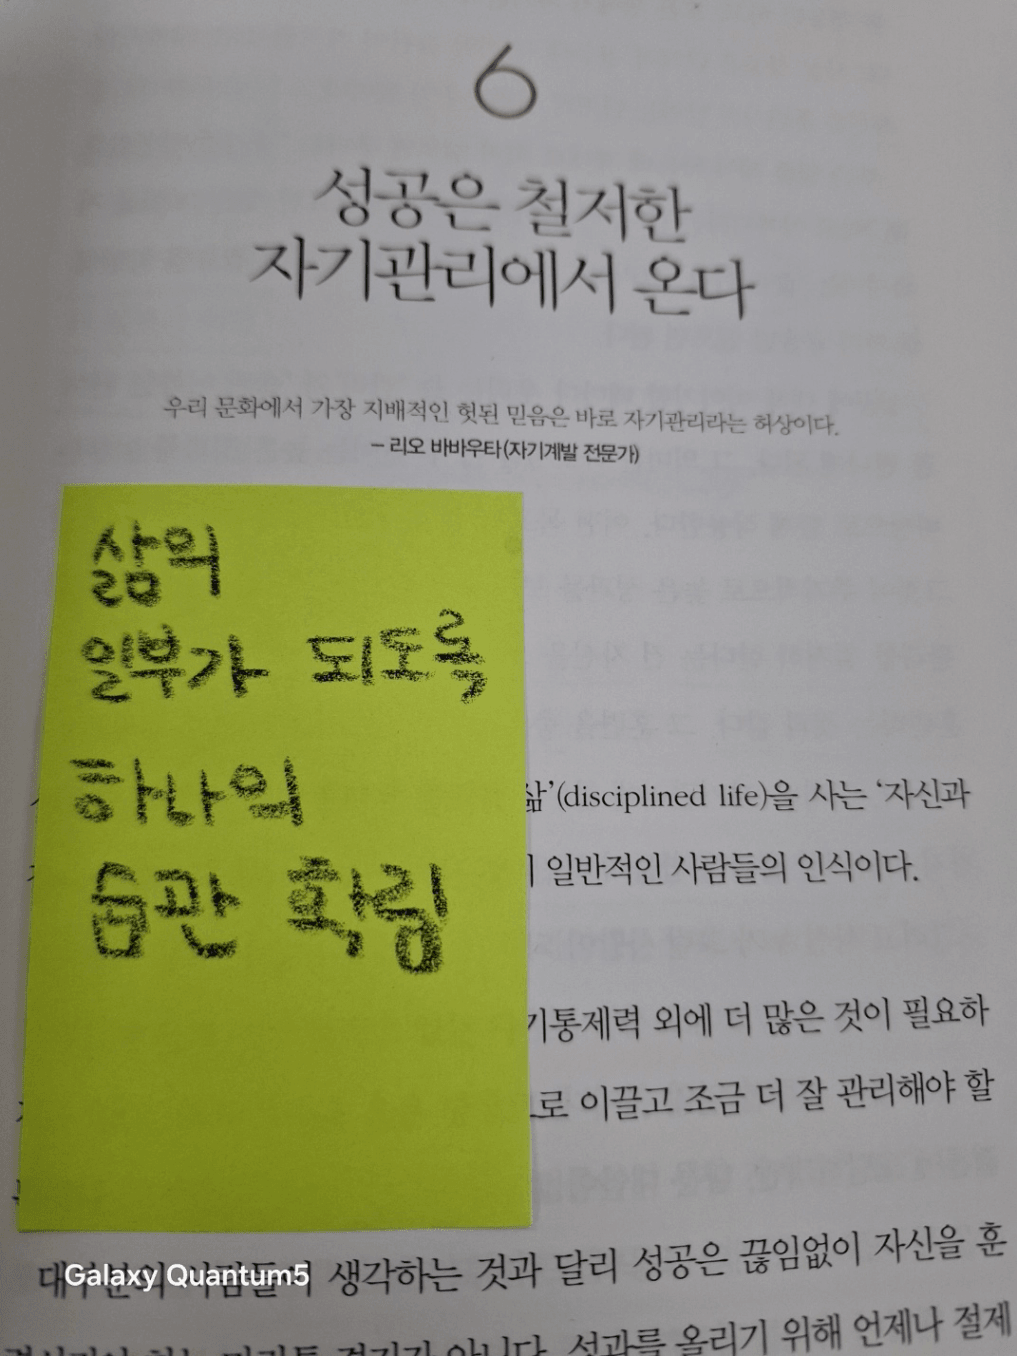 6
성공은 철저한
자기관리에서 온다
우리 문화에서 가장 지배적인 헛된 믿음은 바로 자기관리라는 허상이다.
– 리오 바바우타(자기계발 전문가)
삶의
일부가 되도록
하나의
습관 확립
삶’(disciplined life)을 사는 ‘자신과
일반적인 사람들의 인식이다.
기통제력 외에 더 많은 것이 필요하
로 이끌고 조금 더 잘 관리해야 할
생각하는 것과 달리 성공은 끊임없이 자신을 훈
아니다. 성과를 올리기 위해 언제나 절제
Galaxy Quantum5